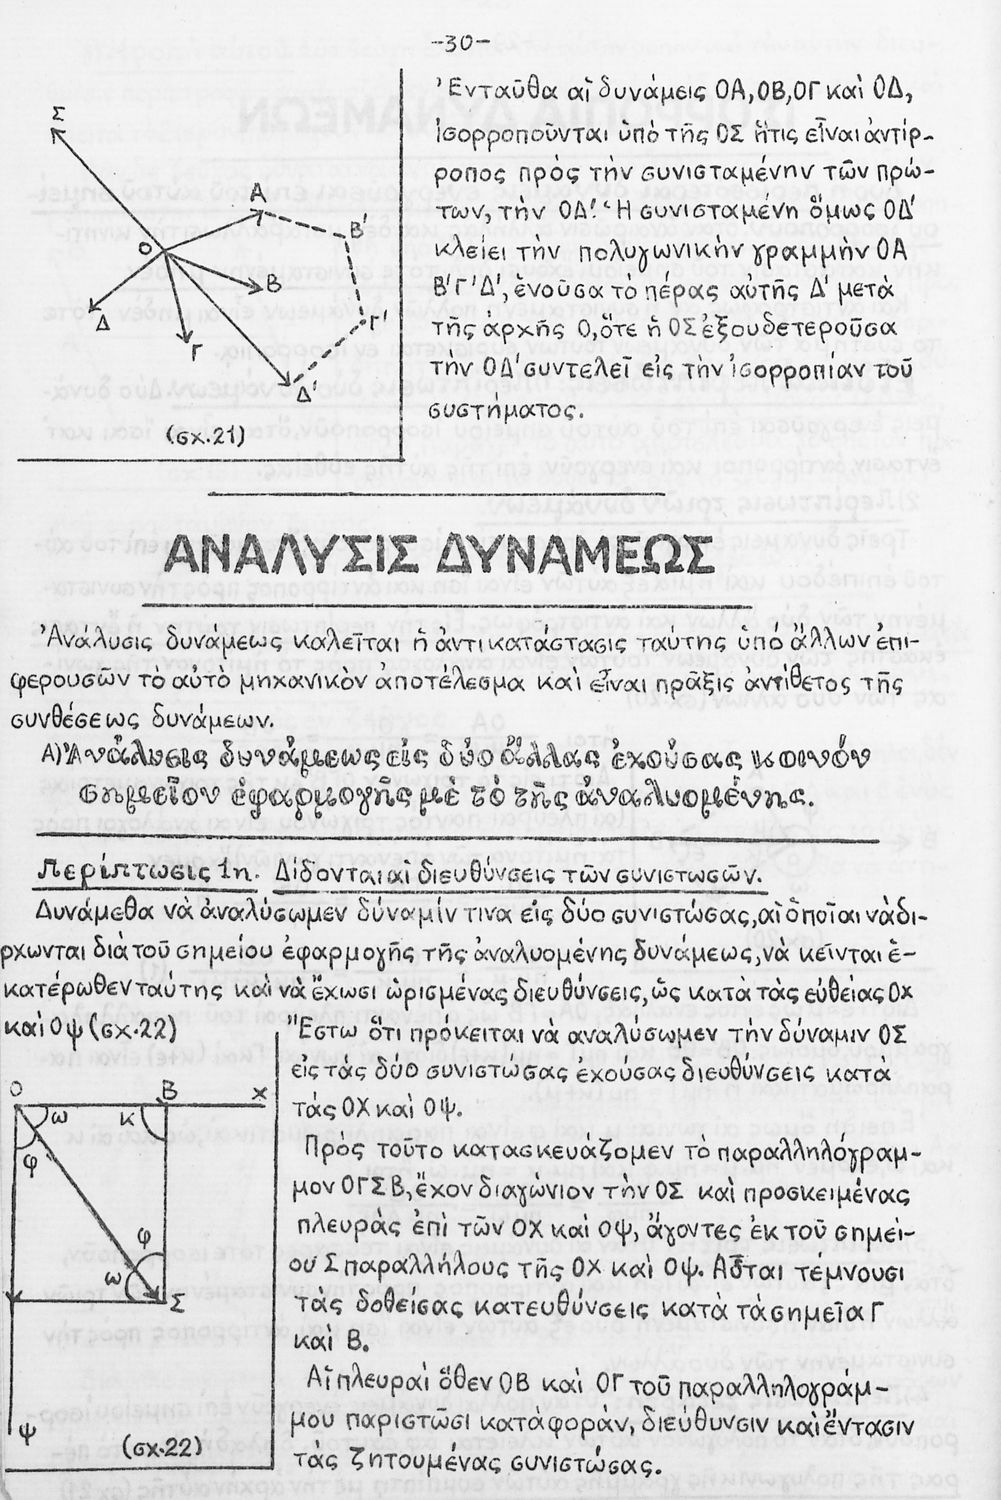 -30-
Σ
Α
Β'
Ο
Β
Δ
Γ
Γ'
Δ'
(σχ.21)
Ἐνταῦθα αἱ δυνάμεις ΟΑ,ΟΒ,ΟΓ καὶ ΟΔ,
ἰσορροποῦνται ὑπὸ τῆς ΟΣ ἥτις εἶναι ἀντίρ-
ροπος πρὸς τὴν συνισταμένην τῶν πρώ-
των, τὴν ΟΔ'. Ἡ συνισταμένη ὅμως ΟΔ'
κλείει τὴν πολυγωνικὴν γραμμὴν ΟΑ
Β'Γ'Δ', ἑνοῦσα το πέρας αὐτῆς Δ' μετά
τῆς ἀρχῆς Ο, ὅτε ἡ ΟΣ ἐξουδετεροῦσα
τὴν ΟΔ' συντελεῖ εἰς τὴν ἰσορροπίαν τοῦ
συστήματος.
ΑΝΑΛΥΣΙΣ ΔΥΝΑΜΕΩΣ
Ἀνάλυσις δυνάμεως καλεῖται ἡ ἀντικατάστασις ταύτης ὑπό ἄλλων ἐπι-
φερουσῶν το αὐτὸ μηχανικὸν ἀποτέλεσμα καὶ εἶναι πρᾶξις ἀντίθετος τῆς
συνθέσεως δυνάμεων.
Α) Ἀνάλυσις δυνάμεως εἰς δύο ἄλλας ἐχούσας κοινόν
σημεῖον ἐφαρμογῆς μὲ τὸ τῆς ἀναλυομένης.
Περίπτωσις 1η. Δίδονται αἱ διευθύνσεις τῶν συνιστωσῶν.
Δυνάμεθα νὰ ἀναλύσωμεν δύναμίν τινα εἰς δύο συνιστώσας, αἱ ὁποῖαι νὰ δι-
ρχωνται διὰ τοῦ σημείου ἐφαρμογῆς τῆς ἀναλυομένης δυνάμεως, νὰ κεῖνται ἑ-
κατέρωθεν ταύτης καὶ νὰ ἔχωσι ὡρισμένας διευθύνσεις, ὡς κατὰ τὰς εὐθείας Οχ
καὶ Οψ (σχ.22)
Ο
Β
χ
ω
κ
φ
φ
ω
Σ
ψ
(σχ.22)
Ἔστω ὅτι πρόκειται νὰ ἀναλύσωμεν τὴν δύναμιν ΟΣ
εἰς τὰς δύο συνιστώσας ἐχούσας διευθύνσεις κατὰ
τὰς ΟΧ καὶ Οψ.
Πρὸς τοῦτο κατασκευάζομεν τὸ παραλληλόγραμ-
μον ΟΓΣΒ, ἔχον διαγώνιον τὴν ΟΣ καὶ προσκειμένας
πλευρὰς ἐπὶ τῶν ΟΧ καὶ Οψ, ἄγοντες ἐκ τοῦ σημεί-
ου Σ παραλλήλους τῆς ΟΧ καὶ Οψ. Αὗται τέμνουσι
τὰς δοθείσας κατευθύνσεις κατὰ τὰ σημεῖα Γ
καὶ Β.
Αἱ πλευραὶ ὅθεν ΟΒ καὶ ΟΓ τοῦ παραλληλογράμ-
μου παριστῶσι κατὰ φοράν, διεύθυνσιν καὶ ἔντασιν
τὰς ζητουμένας συνιστώσας.